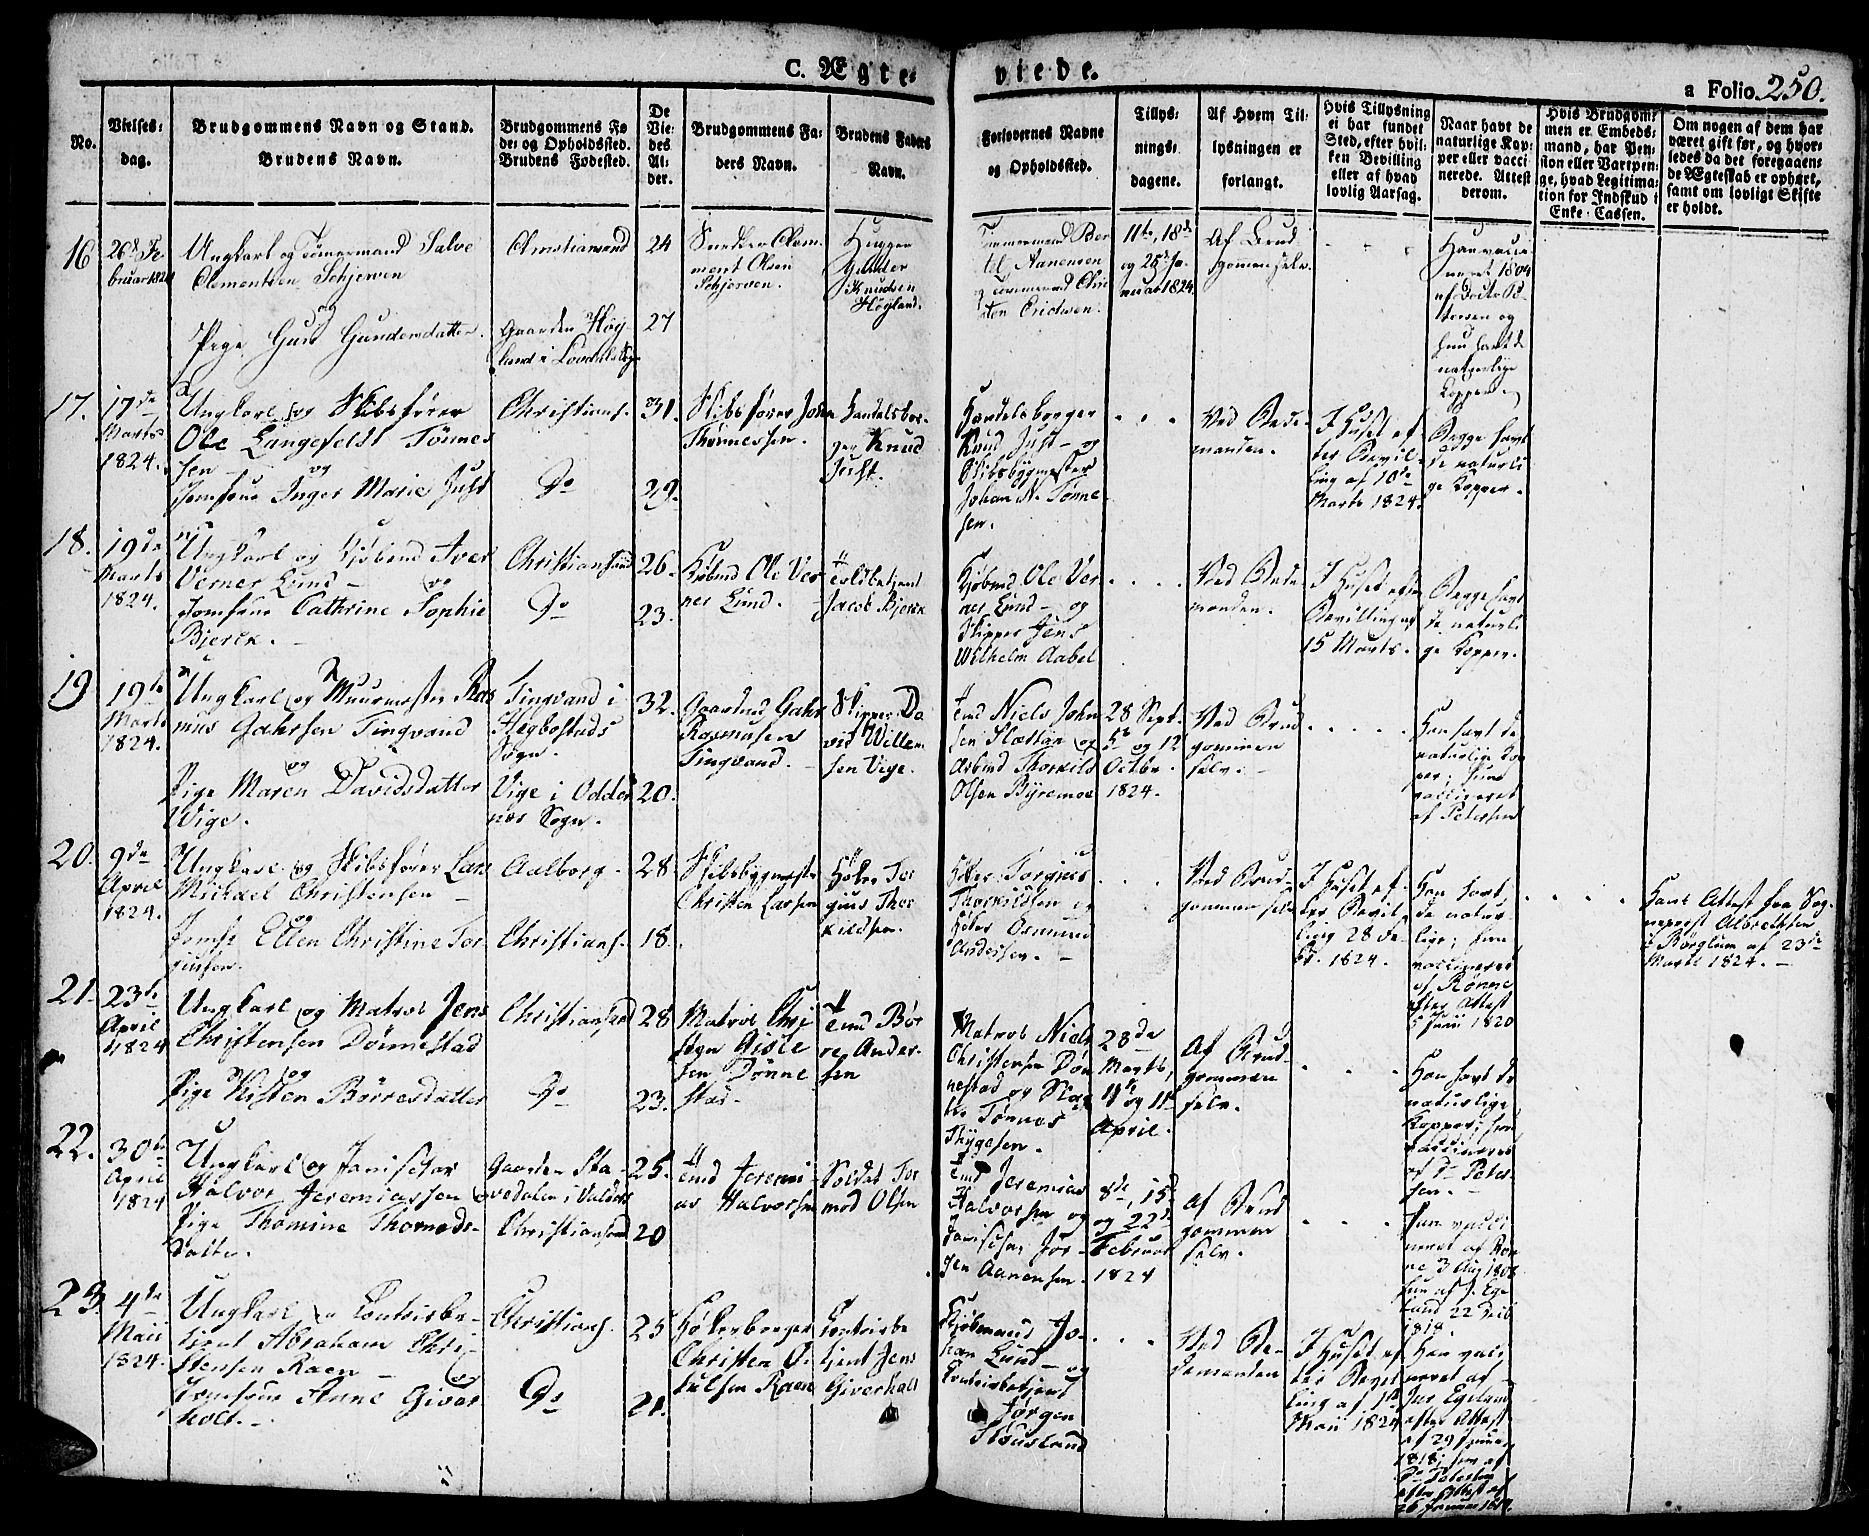 C. Ægte- viede.
a Folio 250.
No.
Vielses-
dag.
Brudgommens Navn og Stand.
Brudens Navn.
Brudgommens Fø
de- og Opholdssted.
Brudens Fødested.
De
Vie-
des
Al-
der.
Brudgommens Fa-
ders Navn.
Brudens Faders
Navn.
Forlovernes Navne
og Opholdssted.
Tillys-
nings-
dagene.
Af Hvem Til-
lysningen er
forlangt.
Hvis Tillysning
ei har fundet
Sted, efter hvil-
ken Bevilling
eller af hvad
lovlig Aarsag.
Naar havt de
naturlige Kop-
per eller vacci
nerede. Attest
derom.
Hvis Brudgom-
men er Embeds-
mand, har Pen-
sion eller Vartpen-
ge, hvad Legitima-
tion for Indskud i
Enke-Cassen.
Om nogen af dem har
været gift før, og hvor-
ledes da det foregaaen-
de Ægteskab er ophørt,
samt om lovligt Skifte
er holdt.
16
26de Fe-
bruar 1824
Ungkarl og Tømmermand Salve
Clementsen Schjerven
og
Pige Guri Gundersdatter.
Christiansand
Gaarden Høg-
land i
24
27
Snedker Clem-
ment Olsen
Schjerven.
Gunder
Knudsen
Høgland.
Tømmermand Ber
tel Aanensen
og Tømmermand Chri
sten Erichsen.
11te, 18de
og 25de Ja-
nuar 1824.
Af Brud
gommen selv.
Han vacci-
neret 1804
af Doctor Pe-
tersen og
hun havt de
naturlige
Kopper.
17.
17de
Marts
1824.
Ungkarl og Skibsfører
Ole Langefeldt Tønnes
sen
og
Jomfrue Inger Marie Just
Christians.
Do
31.
29.
Skibsfører John
Thønnessen.
Handelsbor-
ger Knud
Just.
Handelsborger
Knud Just – og
Skibsbygmester
Johan N. Tønne
sen.
Ved Bede-
manden.
I Huset ef
ter Bevil-
ling af 10de
Marts 1824.
Begge havt
de naturli
ge Kopper.
18.
19de
Marts
1824.
Ungkarl og Kjøbmd Iver
Verner Lund –
og
Jomfrue Cathrine Sophie
Bjerck.
Christiansand
Do
26.
23.
Kjøbmd Ole Ver
ner Lund.
Toldbetjent
Jacob Bjerck
Kjøbmd Ole Ver
ner Lund – og
Skipper Jens
Wilhelm Aabel
Ved Bede
manden.
I Huset efter
Bevilling af
15 Marts.
Begge havt
de naturli
ge Kopper.
19
19de
Marts
1824.
Ungkarl og Muurmester Ras
mus Gahrsen Tingvand
og
Pige Maren Davidsdatter
Vige.
Tingvand i
Hegbostads
Sogn.
Vige i Odder
nes Sogn.
32.
20.
Gaardmd Gahr
Rasmusen
Tingvand.
Skipper Da
vid Willem
sen Vige.
Niels John
sen Slettan og
Arbmd Thorkild
Olsen Byremoe
28 Sept.
5te og 12
Octbr.
1824.
Ved Brud
gommen
selv.
Han havt de
naturlige Kop
per; hun
vaccineret
af Petersen
20.
9de
April
1824.
Ungkarl og Skibsfører Lars
Michael Christensen
og
Jomfr Ellen Christine Tor-
jusen.
Aalborg.
Christians.
28.
18.
Skibsbygmester
Christen Larsen
Høker Tor
gius Thor
kildsen.
Høker Torgius
Thorkildsen og
Høker Osmund
Andersen.
Ved Brud-
gommen selv
I Huset ef-
ter Bevil-
ling 28 Fe-
br. 1824.
Han havt
de natur-
lige; hun
vaccineret
af Rønne
efter Attest
5 Junii 1820
Hans Attest fra Sog-
neprest Albrechtsen
i Børglum af 23de
Marts 1824.
21.
23de
April
1824
Ungkarl og Matros Jens
Christensen Dønnestad
og
Pige Kisten Børresdatter
Christiansand
Do
28
23.
Matros Chri
sten Gisle
sen Dønne
stad.
Børre
Ander-
sen
Matros Niels
Christensen Døn
nestad og
Tønnes
Thygesen.
28de
Marts,
4de og 11te
April.
Af Brud-
gommen
selv.
Han havt de
naturlige
Kopper; hun
vaccineret
af Dr Peter-
sen.
22.
30te
April
1824
Ungkarl og Janitschar
Halvor Jeremiassen og
Pige Thomine Thormods-
datter.
Gaarden Sta-
vedalen i
Christiansand
25.
20
Jeremi-
as Halvorsen
Soldat Tor
mod Olsen
Jeremias
Halvorsen og
Janitschar Jør-
gen Aanensen.
8de, 15de
og 22de
Februar
1824
Af Brud
gommen
selv.
Han vacci
neret af Røn
ne 3 Aug 1808
hun af J. Ege
land 22 Decb
1819.
23.
4de
Maii
1824.
Ungkarl og Contoirbe-
tjent Abraham Chri-
stensen Raen –
og
Jomfrue Anne Giver
holt.
Christians.
Do
25
21.
Høkerborger
Christen
Raen
Contoirbe
tjent Jens
Giverholt
Kjøbmand Jo-
han Lund –
og
Contoirbetjent
Jørgen
Skousland
Ved Be-
demanden
I Huset ef
ter Bevil
ling af 1ste
Maii 1824
Han vacci
neret af
Jac Egeland
efter Attest
af 29 Januar
1818; hun af
Dr Petersen
efter Attest af
26 Januar